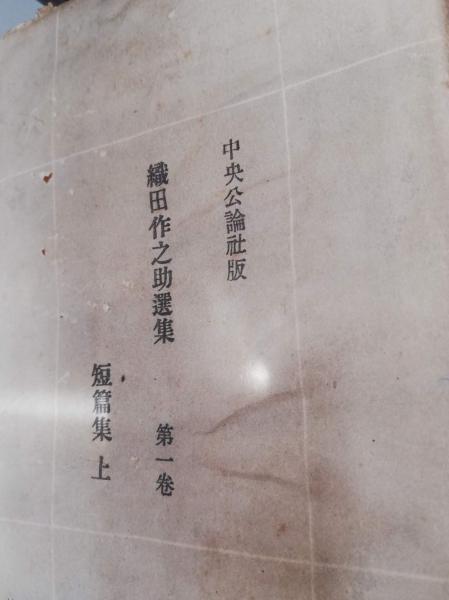 中央公論社版
織田作之助選集 第一卷
短篇集 上